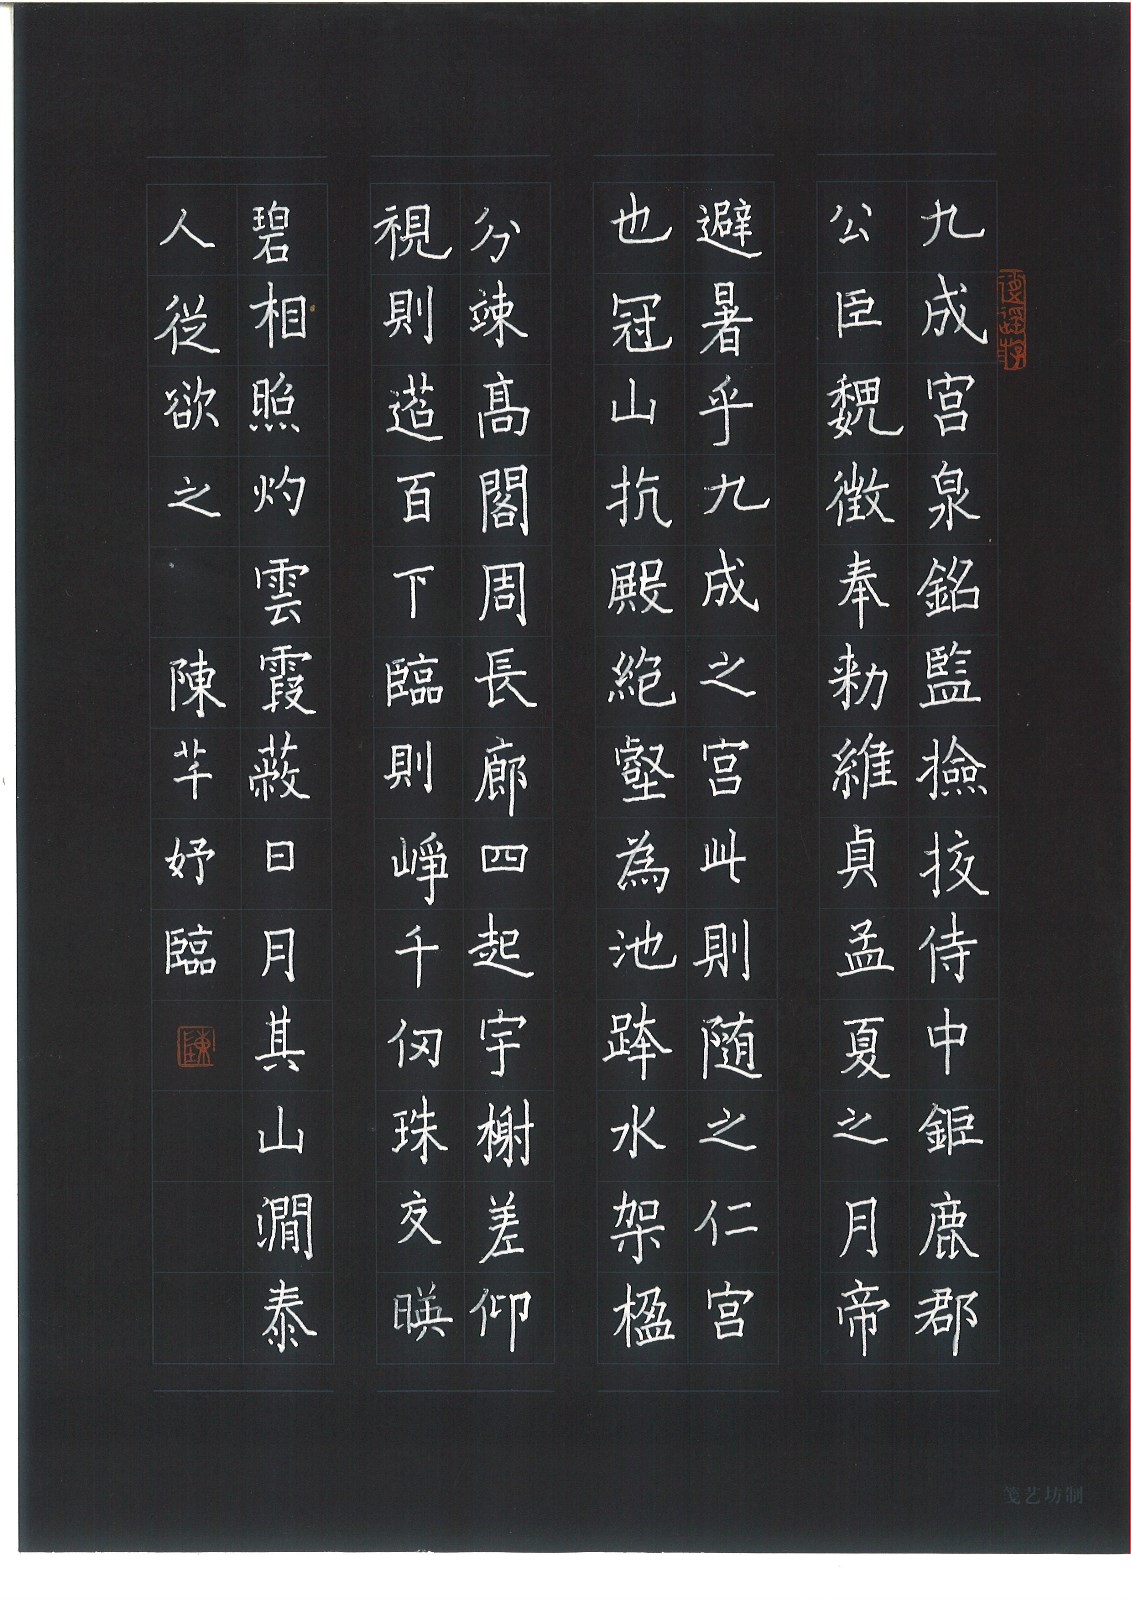 九成宫泉銘監撿挍侍中鉅鹿郡
公臣魏徵奉勑維貞孟夏之月帝
避暑乎九成之宫此則随之仁宫
也冠山抗殿絶壑為池跨水架楹
分竦髙閣周長廊四起宇榭差仰
視則迢百下臨則崢千仞珠交暎
碧相照灼雲霞蔽日月其山澗泰
人從欲之 陳芊妤臨
陳
笺艺坊制